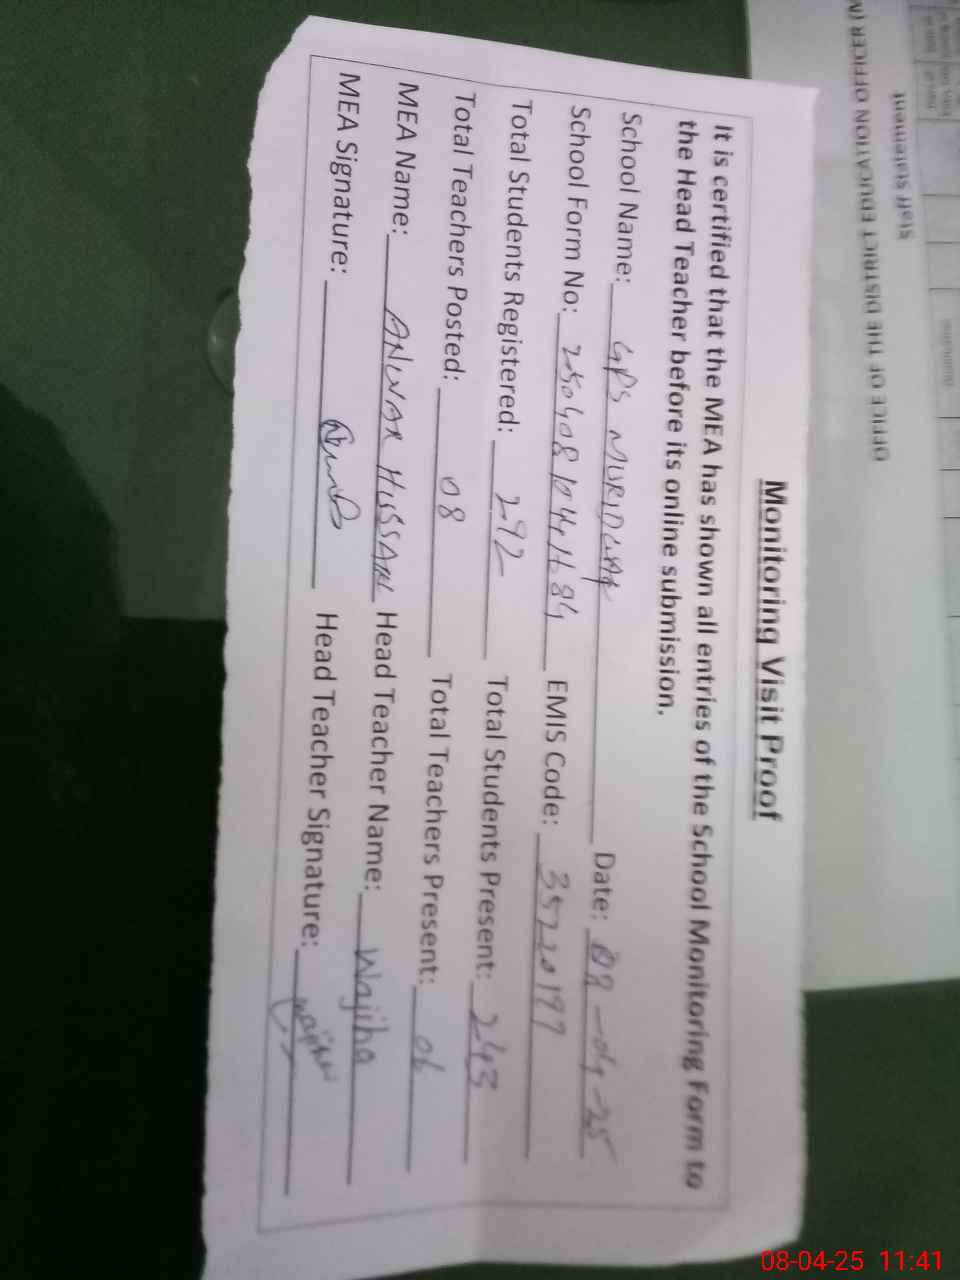 Monitoring Visit Proof
It is certified that the MEA has shown all entries of the School Monitoring Form to
the Head Teacher before its online submission.
School Name: GPS MURIDWAH Date: 08-04-25
School Form No: EMIS Code: 35220197
Total Students Registered: 292 Total Students Present: 243
Total Teachers Posted: 08 Total Teachers Present: 06
MEA Name: ANWAR HUSSAIN Head Teacher Name: Wajiha
MEA Signature: Head Teacher Signature: Wajiha
OFFICE OF THE DISTRICT EDUCATION OFFICER (M
Staff Statement
08-04-25 11:41